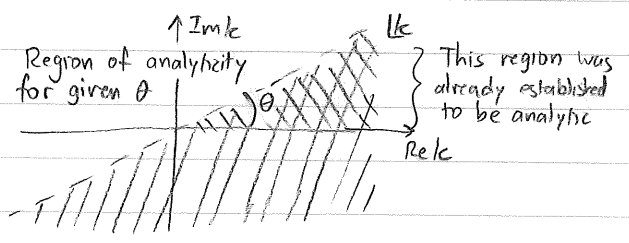 Im k
k
Region of analyticity
for given θ
θ
This region was
already established
to be analytic
Re k